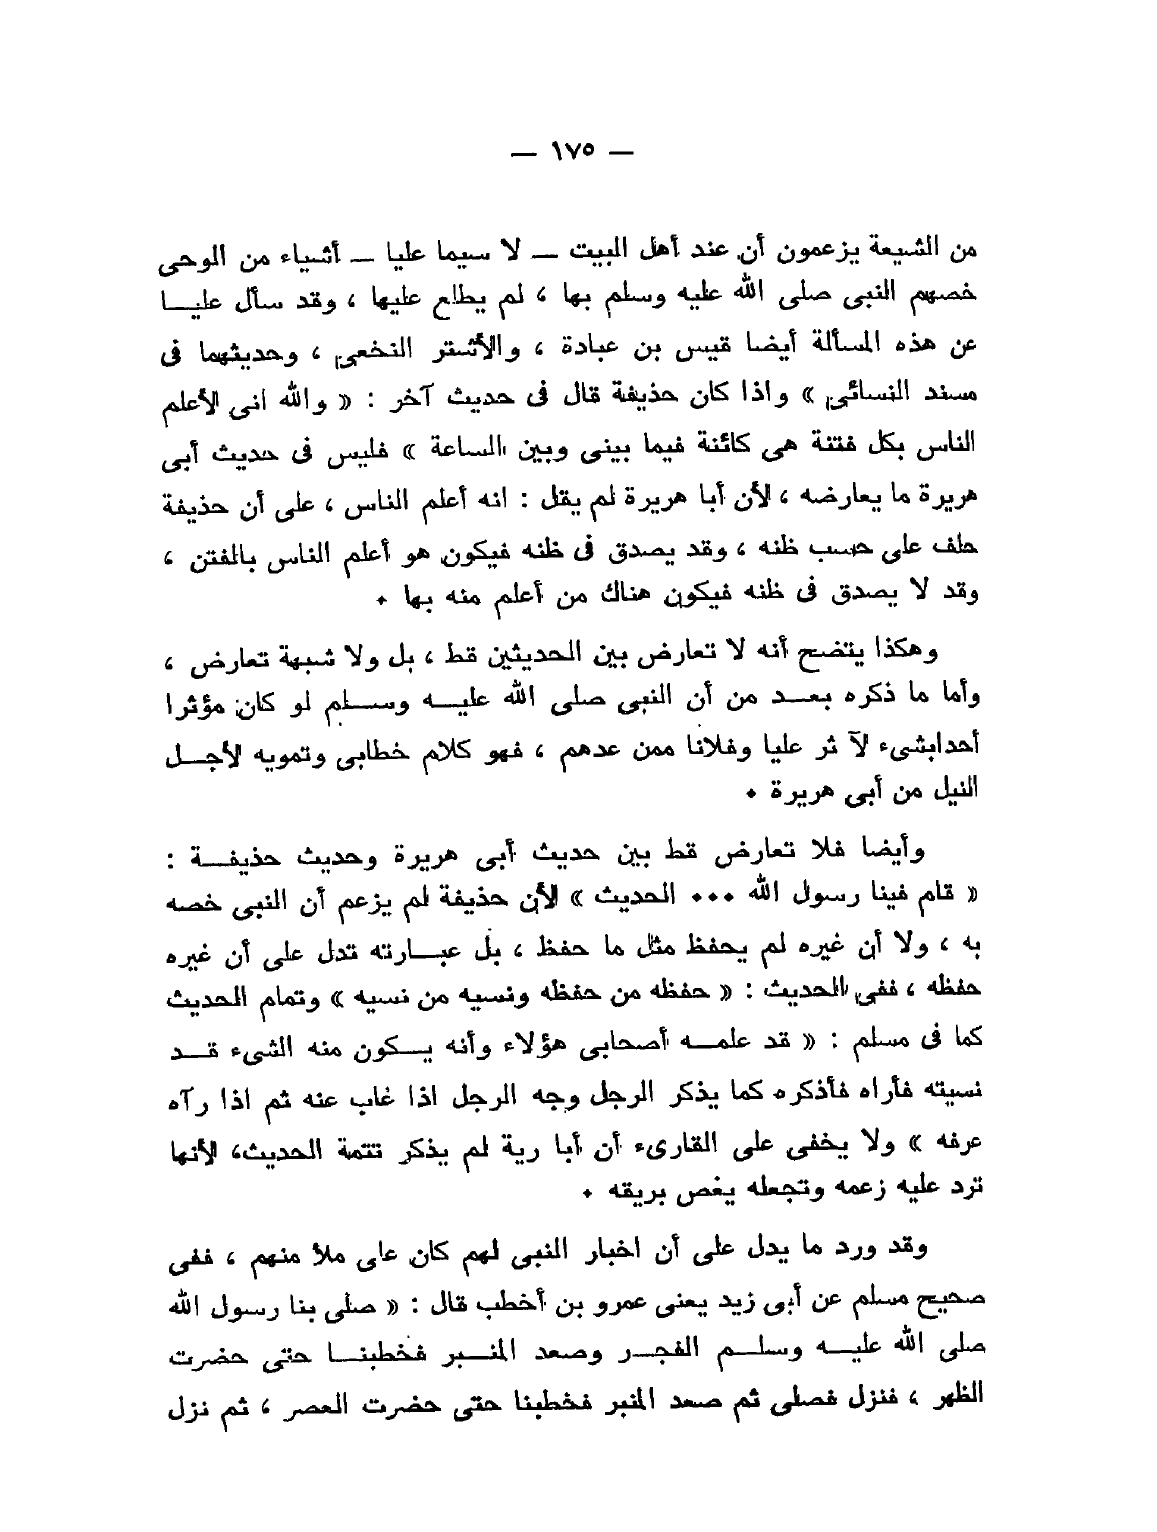 — ١٧٥ —
من الشيعة يزعمون أن عند أهل البيت — لا سيما عليا — أشياء من الوحى
خصهم النبى صلى الله عليه وسلم بها ، لم يطلع عليها ، وقد سأل عليـــا
عن هذه المسألة أيضا قيس بن عبادة ، والأشتر النخعى ، وحديثهما فى
مسند النسائى » واذا كان حذيفة قال فى حديث آخر : « والله انى لأعلم
الناس بكل فتنة هى كائنة فيما بينى وبين الساعة » فليس فى حديث أبى
هريرة ما يعارضه ، لأن أبا هريرة لم يقل : انه أعلم الناس ، على أن حذيفة
حلف على حسب ظنه ، وقد يصدق فى ظنه فيكون هو أعلم الناس بالفتن ،
وقد لا يصدق فى ظنه فيكون هناك من أعلم منه بها ٠
وهكذا يتضح أنه لا تعارض بين الحديثين قط ، بل ولا شبهة تعارض ،
وأما ما ذكره بعـــد من أن النبى صلى الله عليـــه وســـلم لو كان مؤثرا
أحدابشىء لآ ثر عليا وفلانا ممن عدهم ، فهو كلام خطابى وتمويه لأجـــل
النيل من أبى هريرة ٠
وأيضا فلا تعارض قط بين حديث أبى هريرة وحديث حذيفـــة :
« قام فينا رسول الله ٠٠٠ الحديث » لأن حذيفة لم يزعم أن النبى خصه
به ، ولا أن غيره لم يحفظ مثل ما حفظ ، بل عبـــارته تدل على أن غيره
حفظه ، ففى الحديث : « حفظه من حفظه ونسيه من نسيه » وتمام الحديث
كما فى مسلم : « قد علمـــه أصحابى هؤلاء وأنه يـــكون منه الشىء قـــد
نسيته فأراه فأذكره كما يذكر الرجل وجه الرجل اذا غاب عنه ثم اذا رآه
عرفه » ولا يخفى على القارىء أن أبا رية لم يذكر تتمة الحديث، لأنها
ترد عليه زعمه وتجعله يغص بريقه ٠
وقد ورد ما يدل على أن اخبار النبى لهم كان على ملأ منهم ، ففى
صحيح مسلم عن أبى زيد يعنى عمرو بن أخطب قال : « صلى بنا رسول الله
صلى الله عليـــه وسلـــم الفجـــر وصعد المنـــبر فخطبنـــا حتى حضرت
الظهر ، فنزل فصلى ثم صعد المنبر فخطبنا حتى حضرت العصر ، ثم نزل